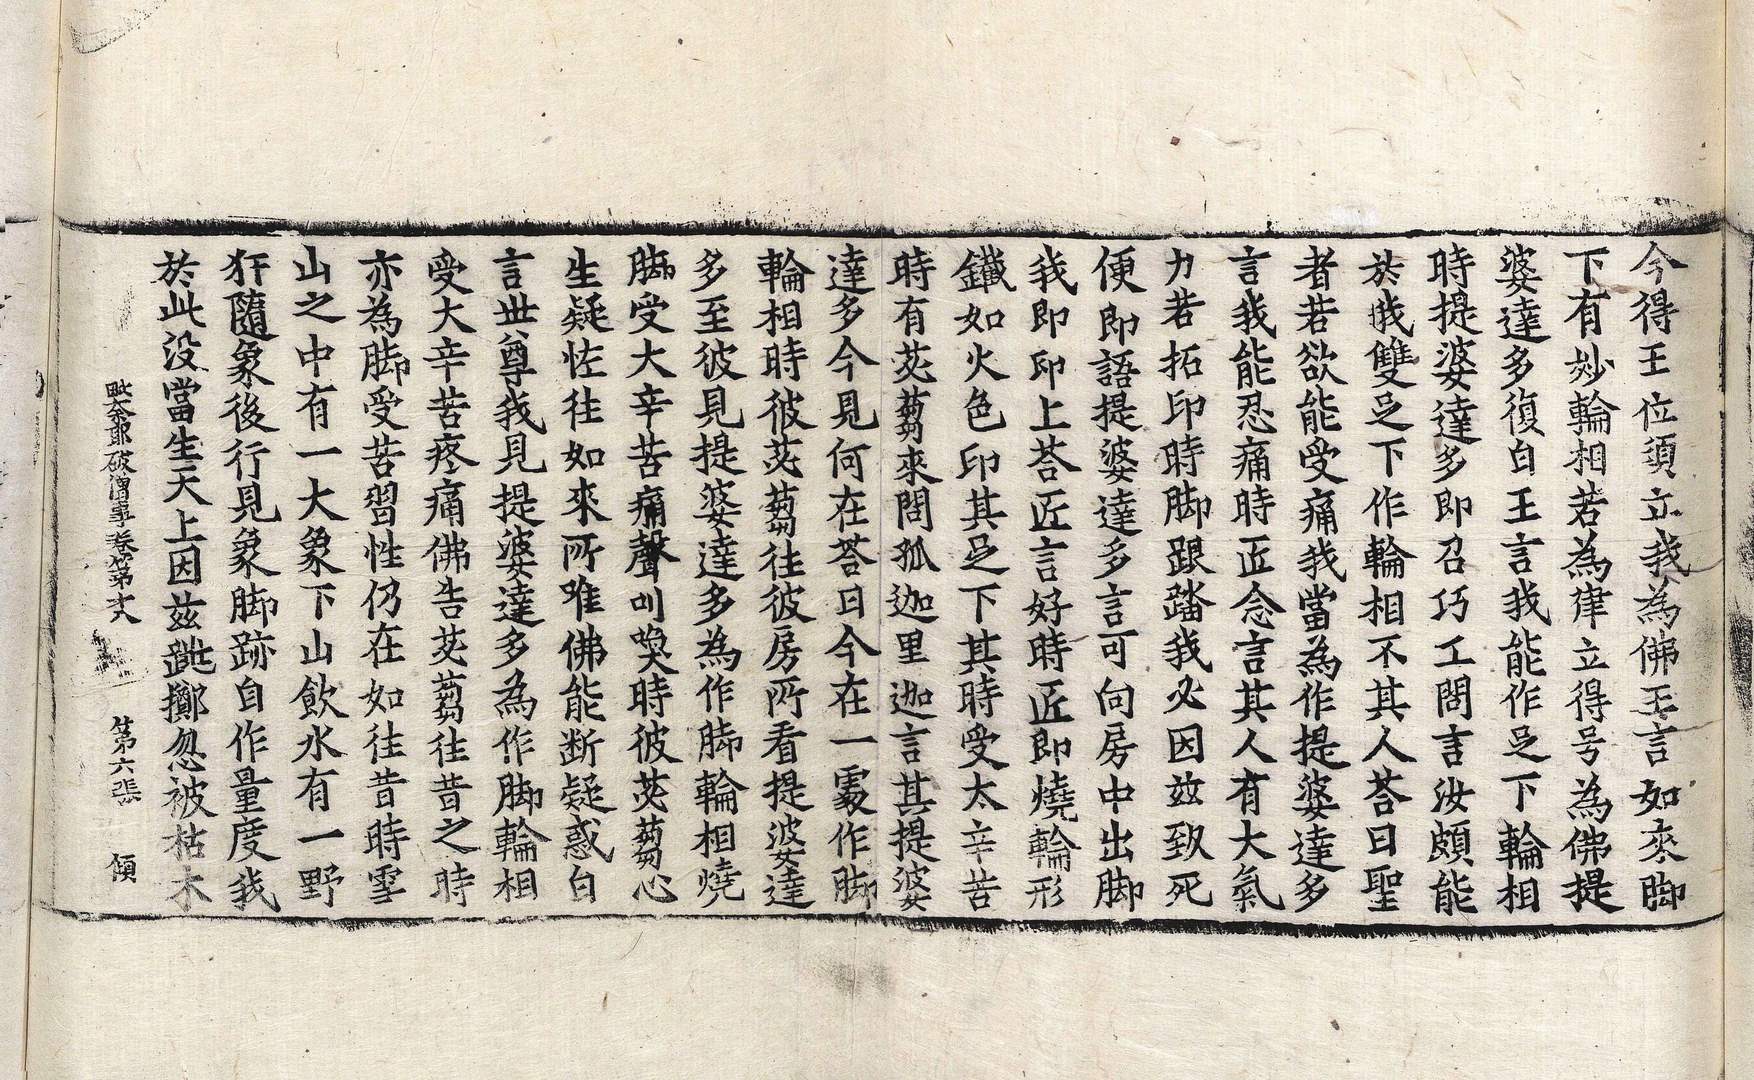 今得王位須立我為佛王言如來脚
下有妙輪相若為律立得号為佛提
婆達多復白王言我能作足下輪相
時提婆達多即召巧工問言汝頗能
於我雙足之下作輪相不其人荅曰聖
者若欲能受痛我當為作提婆達多
言我能忍痛時匠念言其人有大氣
力若拓印時脚跟踏我必因兹致死
便即語提婆達多言可向房中出脚
我即印上荅匠言好時匠即燒輪形
鐵如火色印其足下其時受太辛苦
時有苾蒭來問孤迦里迦言其提婆
達多今見何在荅曰今在一處作脚
輪相時彼苾蒭往彼房所看提婆達
多至彼見提婆達多為作脚輪相燒
脚受大辛苦痛聲叫喚時彼苾蒭心
生疑恠往如來所唯佛能断疑惑白
言世尊我見提婆達多為作脚輪相
受大辛苦疼痛佛告苾蒭往昔之時
亦為脚受苦習性仍在如往昔時雪
山之中有一大象下山飲水有一野
犴隨象後行見象脚跡自作量度我
於此没當生天上因兹跳擲忽被枯木
破僧事卷第十八 第六張 傾